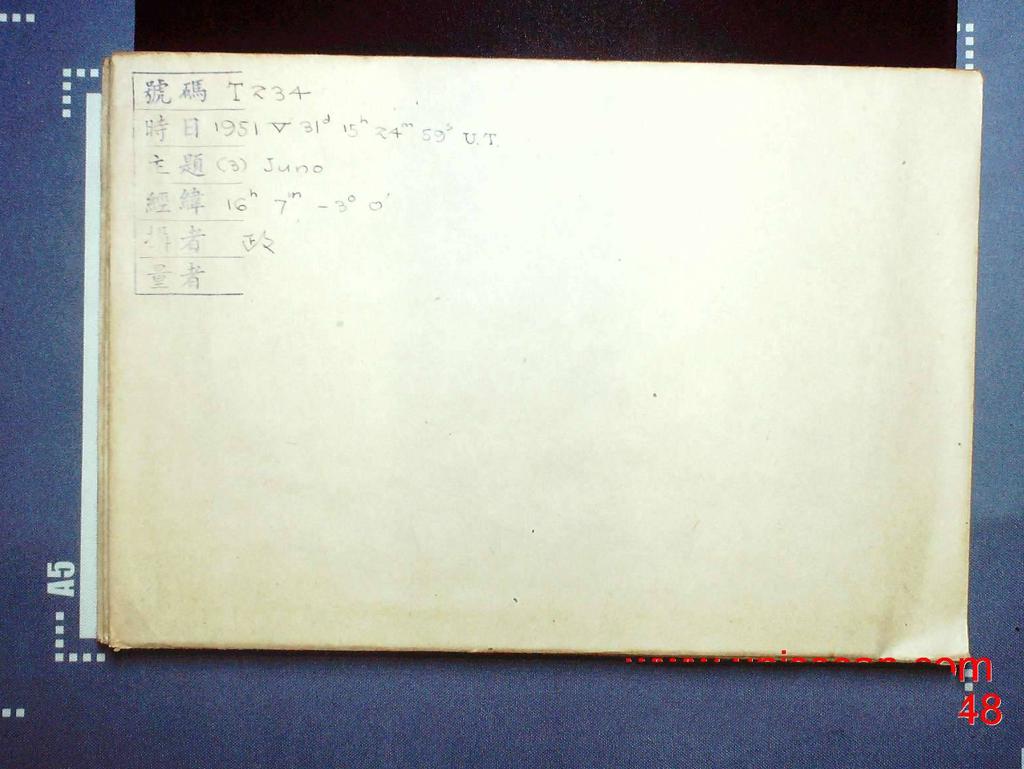 號碼 T234
時日 1951 V 31ᵈ 15ʰ 24ᵐ 59ˢ U.T.
主題 (3) Juno
經緯 16ʰ 7ᵐ -3° 0'
者 政
量者
A5
48